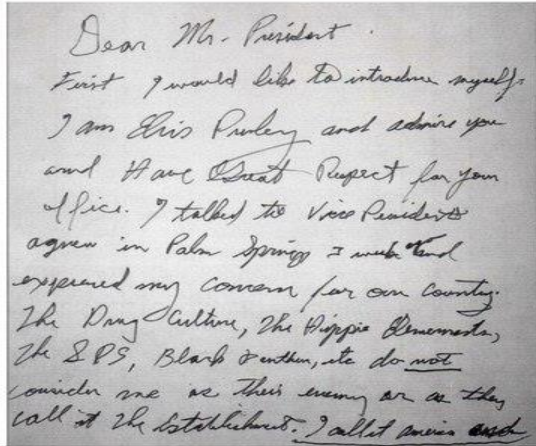 Dear Mr. President.
First I would like to introduce myself.
I am Elvis Presley and admire you
and Have Great Respect for your
office. I talked to Vice President
Agnew in Palm Springs I week and
expressed my concern for our country.
The Drug Culture, The Hippie Elements,
The SDS, Black Panthers, etc do not
consider me as their enemy or as they
call it The Establishment. I call it America and